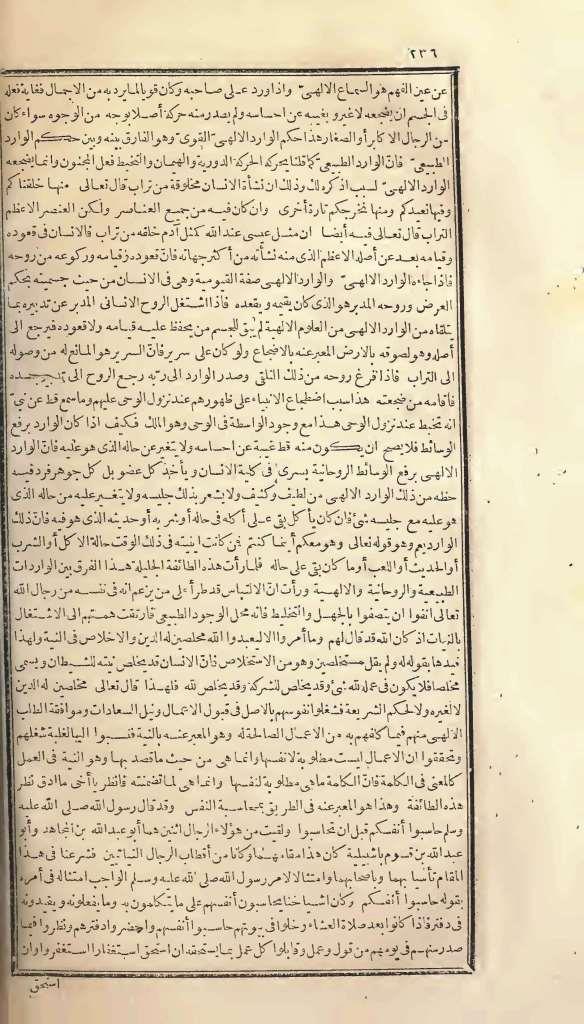 ٢٣٦
عن عين الفهم هو السماع الالهى واذا ورد على صاحبه وكان قويا لما يرد به من الاجمال فغاية فعله
فى الجسم ان يضجعه لاغير ويغيبه عن احساسه ولم يصدر منه حركة أصلا بوجه من الوجوه سواء كان
من الرجال الاكابر أو الصغار هذا حكم الوارد الالهى القوى وهو الفارق بينه وبين حكم الوارد
الطبيعى فان الوارد الطبيعى كما قلنا يحركه الحركة الدورية والهيمان والتخبط فعل المجنون وانما يضجعه
الوارد الالهى لسبب اذكره لك وذلك ان نشأة الانسان مخلوقة من تراب قال تعالى منها خلقناكم
وفيها نعيدكم ومنها نخرجكم تارة أخرى وان كان فيه من جميع العناصر ولكن العنصر الاعظم
التراب قال تعالى فيه أيضا ان مثل عيسى عند الله كمثل آدم خلقه من تراب فالانسان فى قعوده
وقيامه بعد عن أصله الاعظم الذى منه نشأته من أكثر جهاته فان قعوده وقيامه وركوعه من روحه
فاذا جاءه الوارد الالهى والوارد الالهى صفة القيومية وهى فى الانسان من حيث جسميته بحكم
العرض وروحه المدبر هو الذى كان يقيمه ويقعده فاذا اشتغل الروح الانسانى المدبر عن تدبيره بما
يتلقاه من الوارد الالهى من العلوم الالهية لم يبق للجسم من يحفظ عليه قيامه ولا قعوده فيرجع الى
أصله وهو لصوقه بالارض المعبر عنه بالاضجاع ولو كان على سرير فان السرير هو المانع له من وصوله
الى التراب فاذا فرغ روحه من ذلك التلقى وصدر الوارد الى ربه رجع الروح الى تدبير جسده
فأقامه من ضجعته هذا سبب اضطجاع الانبياء على ظهورهم عند نزول الوحى عليهم وما سمع قط عن نبى
انه تخبط عند نزول الوحى هذا مع وجود الواسطة فى الوحى وهو الملك فكيف اذا كان الوارد برفع
الوسائط فلا يصح ان يكون منه قط غيبة عن احساسه ولا يتغير عن حاله الذى هو عليه فان الوارد
الالهى برفع الوسائط الروحانية يسرى فى كلية الانسان ويأخذ كل عضو بل كل جوهر فرد فيه
حظه من ذلك الوارد الالهى من لطيف وكثيف ولا يشعر بذلك جليسه ولا يتغير عليه من حاله الذى
هو عليه مع جليسه شئ فان كان يأكل بقى على أكله فى حاله أو شربه أو حديثه الذى هو فيه فان ذلك
الوارد يعم وهو قوله تعالى وهو معكم أينما كنتم فمن كانت اينيته فى ذلك الوقت حالة الاكل أو الشرب
أو الحديث أو اللعب أو ما كان بقى على حاله فلما رأت هذه الطائفة الجليلة هذا الفرق بين الواردات
الطبيعية والروحانية والالهية ورأت أن الالتباس قد طرأ على من يزعم انه فى نفسه من رجال الله
تعالى أنفوا ان يتصفوا بالجهل والتخليط فانه محل الوجود الطبيعى فارتقت همتهم الى الاشتغال
بالنيات اذ كان الله قد قال لهم وما أمروا الا ليعبدوا الله مخلصين له الدين والاخلاص فى النية ولهذا
قيدها بقوله له ولم يقل مستخلصين وهو من الاستخلاص فان الانسان قد يخلص نيته للشيطان ويسمى
مخلصا فلا يكون فى عمله لله شئ وقد يخلص للشركة وقد يخلص لله فلهذا قال تعالى مخلصين له الدين
لا لغيره ولا لحكم الشريعة فشغلوا نفوسهم بالاصل فى قبول الاعمال ونيل السعادات وموافقة الطلب
الالهى منهم فيما كلفهم به من الاعمال الصالحة له وهو المعبر عنه بالنية فنسبوا اليها لغلبة شغلهم
وتحققوا ان الاعمال ليست مطلوبة لانفسها وانما هى من حيث ما قصد بها وهو النية فى العمل
كالمعنى فى الكلمة فان الكلمة ماهى مطلوبة لنفسها وانما هى لما تضمنته فانظر يا أخى ما أدق نظر
هذه الطائفة وهذا هو المعبر عنه فى الطريق بمحاسبة النفس وقد قال رسول الله صلى الله عليه
وسلم حاسبوا أنفسكم قبل ان تحاسبوا ولقيت من هؤلاء الرجال اثنين هما أبو عبد الله بن المجاهد وأبو
عبد الله بن قسوم باشبيلية كان هذا مقامهما وكانا من أقطاب الرجال النياتيين فشرعنا فى هذا
المقام تأسيا بهما وبأصحابهما وامتثالا لامر رسول الله صلى الله عليه وسلم الواجب امتثاله فى أمره
بقوله حاسبوا أنفسكم وكان اشياخنا يحاسبون أنفسهم على ما يتكلمون به وما يفعلونه ويقيدونه
فى دفتر فاذا كانوا بعد صلاة العشاء وخلوا فى بيوتهم حاسبوا أنفسهم واحضروا دفترهم ونظروا فيما
صدر منهم فى يومهم من قول وعمل وقابلوا كل عمل بما يستحقه ان استحق استغفارا استغفروا وان
استحق